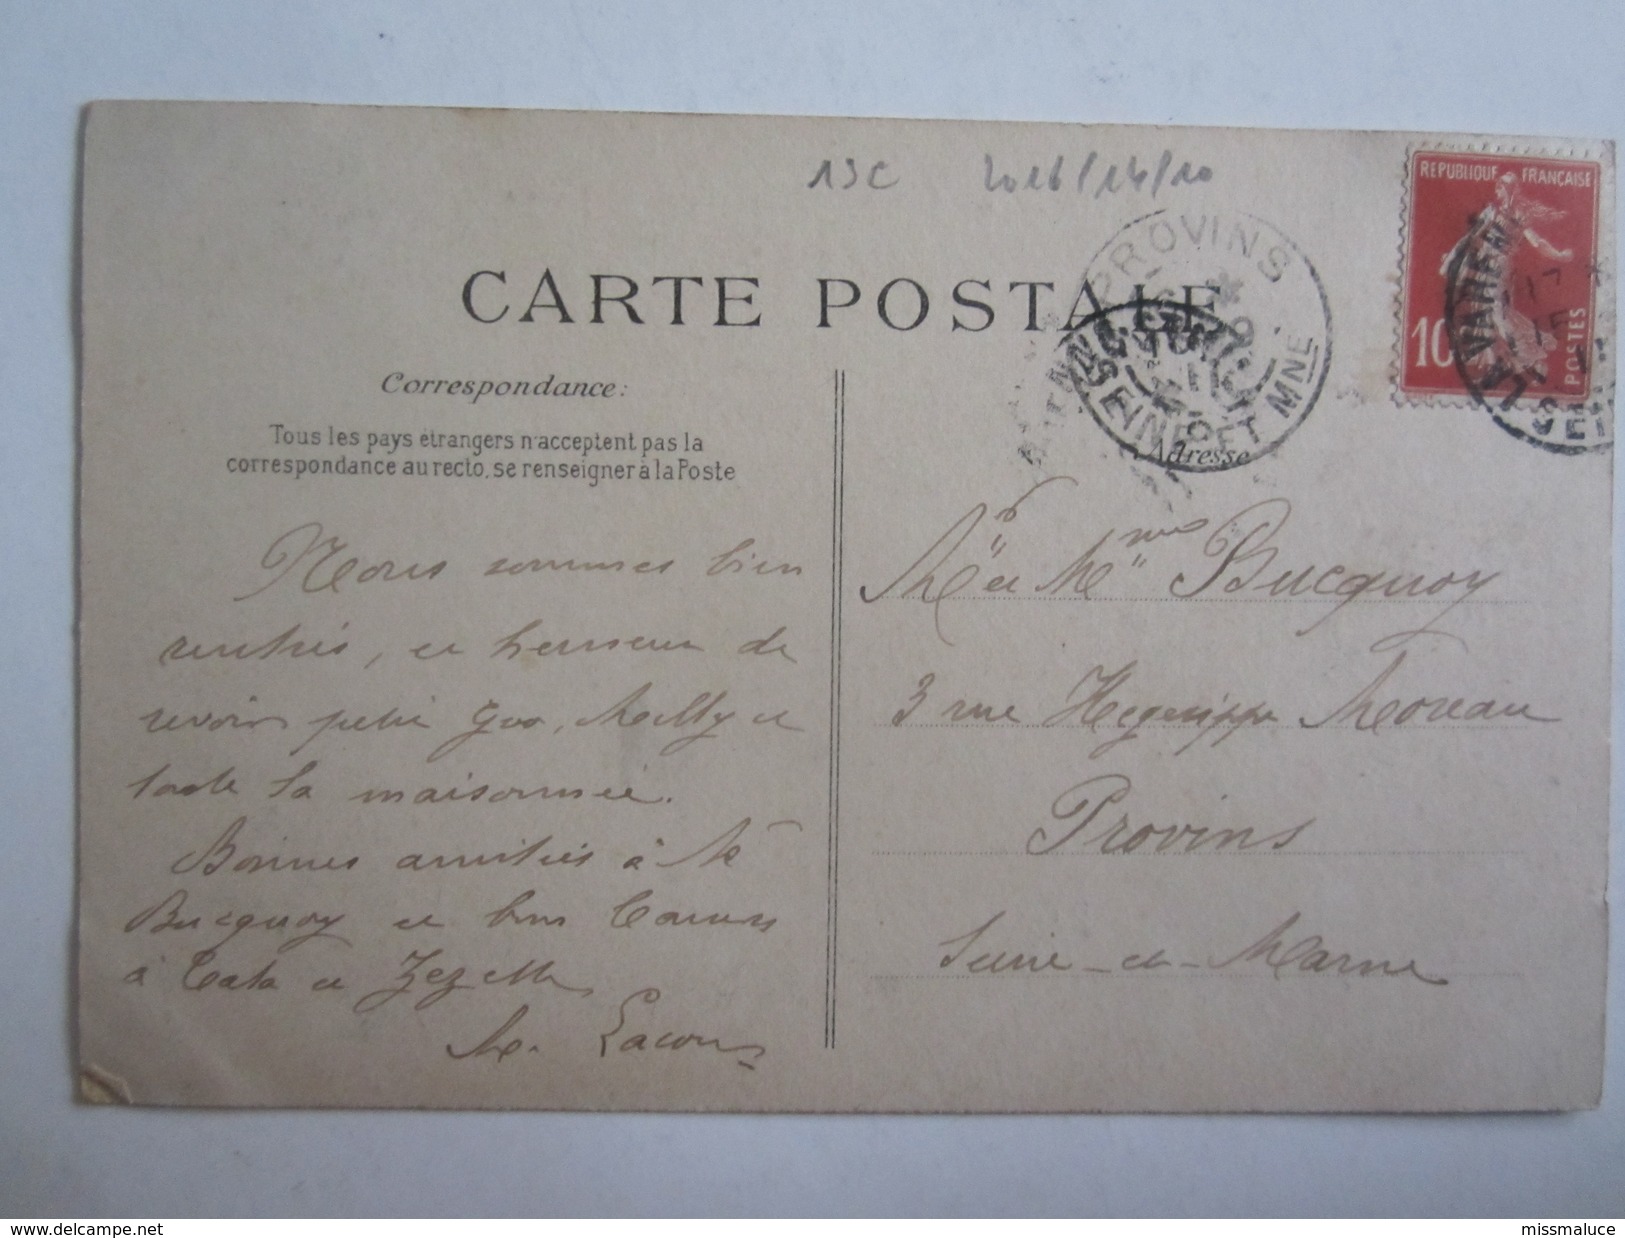 13C 2016/14/10
REPUBLIQUE FRANÇAISE
10
POSTES
LA VARENNE
SEI
PROVINS
SEINE ET MNE
CARTE POSTALE
Correspondance:
Tous les pays étrangers n'acceptent pas la
correspondance au recto, se renseigner à la Poste
Nous sommes bien
rentrés, et heureux de
revoir petit Geo, Melly et
toute la maisonnée.
Bonnes amitiés à Me
Bucquoy et bons
à Tata et Zezelle
M. Lacour
Adresse
Mr et Mme Bucquoy
3 rue Hegesippe Moreau
Provins
Seine-et-Marne
delcampe.net
missmaluce